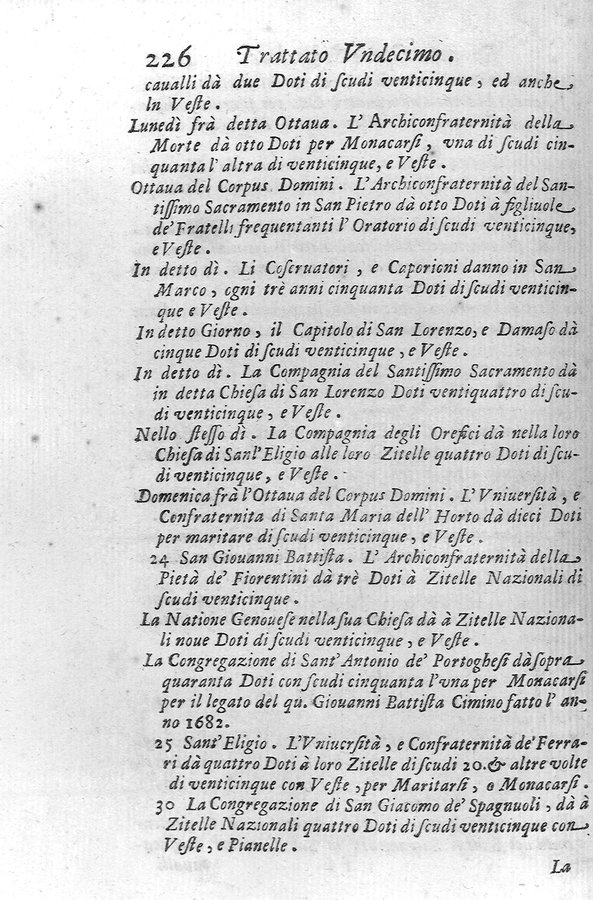 226 Trattato Vndecimo.
caualli dà due Doti di ſcudi venticinque, ed anche
ln Veſte.
Lunedì frà detta Ottaua. L'Archiconfraternità della
Morte dà otto Doti per Monacarſi, vna di ſcudi cin-
quanta l'altra di venticinque, e Veſte.
Ottaua del Corpus Domini. L'Archiconfraternità del San-
tiſſimo Sacramento in San Pietro dà otto Doti à figliuole
de' Fratelli frequentanti l'Oratorio di ſcudi venticinque,
e Veſte.
In detto dì. Li Coſcruatori, e Caporioni danno in San
Marco, ogni trè anni cinquanta Doti di ſcudi venticin-
que e Veſte.
In detto Giorno, il Capitolo di San Lorenzo, e Damaſo dà
cinque Doti di ſcudi venticinque, e Veſte.
In detto dì. La Compagnia del Santiſſimo Sacramento dà
in detta Chieſa di San Lorenzo Doti ventiquattro di ſcu-
di venticinque, e Veſte.
Nello ſteſſo dì. La Compagnia degli Orefici dà nella loro
Chieſa di Sanl'Eligio alle loro Zitelle quattro Doti di ſcu-
di venticinque, e Veſte.
Domenica frà l'Ottaua del Corpus Domini. L'Vniuerſità, e
Confraternita di Santa Maria dell' Horto dà dieci Doti
per maritare di ſcudi venticinque, e Veſte.
24 San Giouanni Battiſta. L'Archiconfraternità della
Pietà de' Fiorentini dà trè Doti à Zitelle Nazionali di
ſcudi venticinque.
La Natione Genoueſe nella ſua Chieſa dà à Zitelle Naziona-
li noue Doti di ſcudi venticinque, e Veſte.
La Congregazione di Sant'Antonio de' Portogheſi dà ſopra
quaranta Doti con ſcudi cinquanta l'vna per Monacarſi
per il legato del qu. Giouanni Battiſta Cimino fatto l'an-
no 1682.
25 Sant'Eligio. L'Vniucrſità, e Confraternità de' Ferra-
ri dà quattro Doti à loro Zitelle di ſcudi 20. & altre volte
di venticinque con Veſte, per Maritarſi, o Monacarſi.
30 La Congregazione di San Giacomo de' Spagnuoli, dà à
Zitelle Nazionali quattro Doti di ſcudi venticinque con
Veſte, e Pianelle.
La